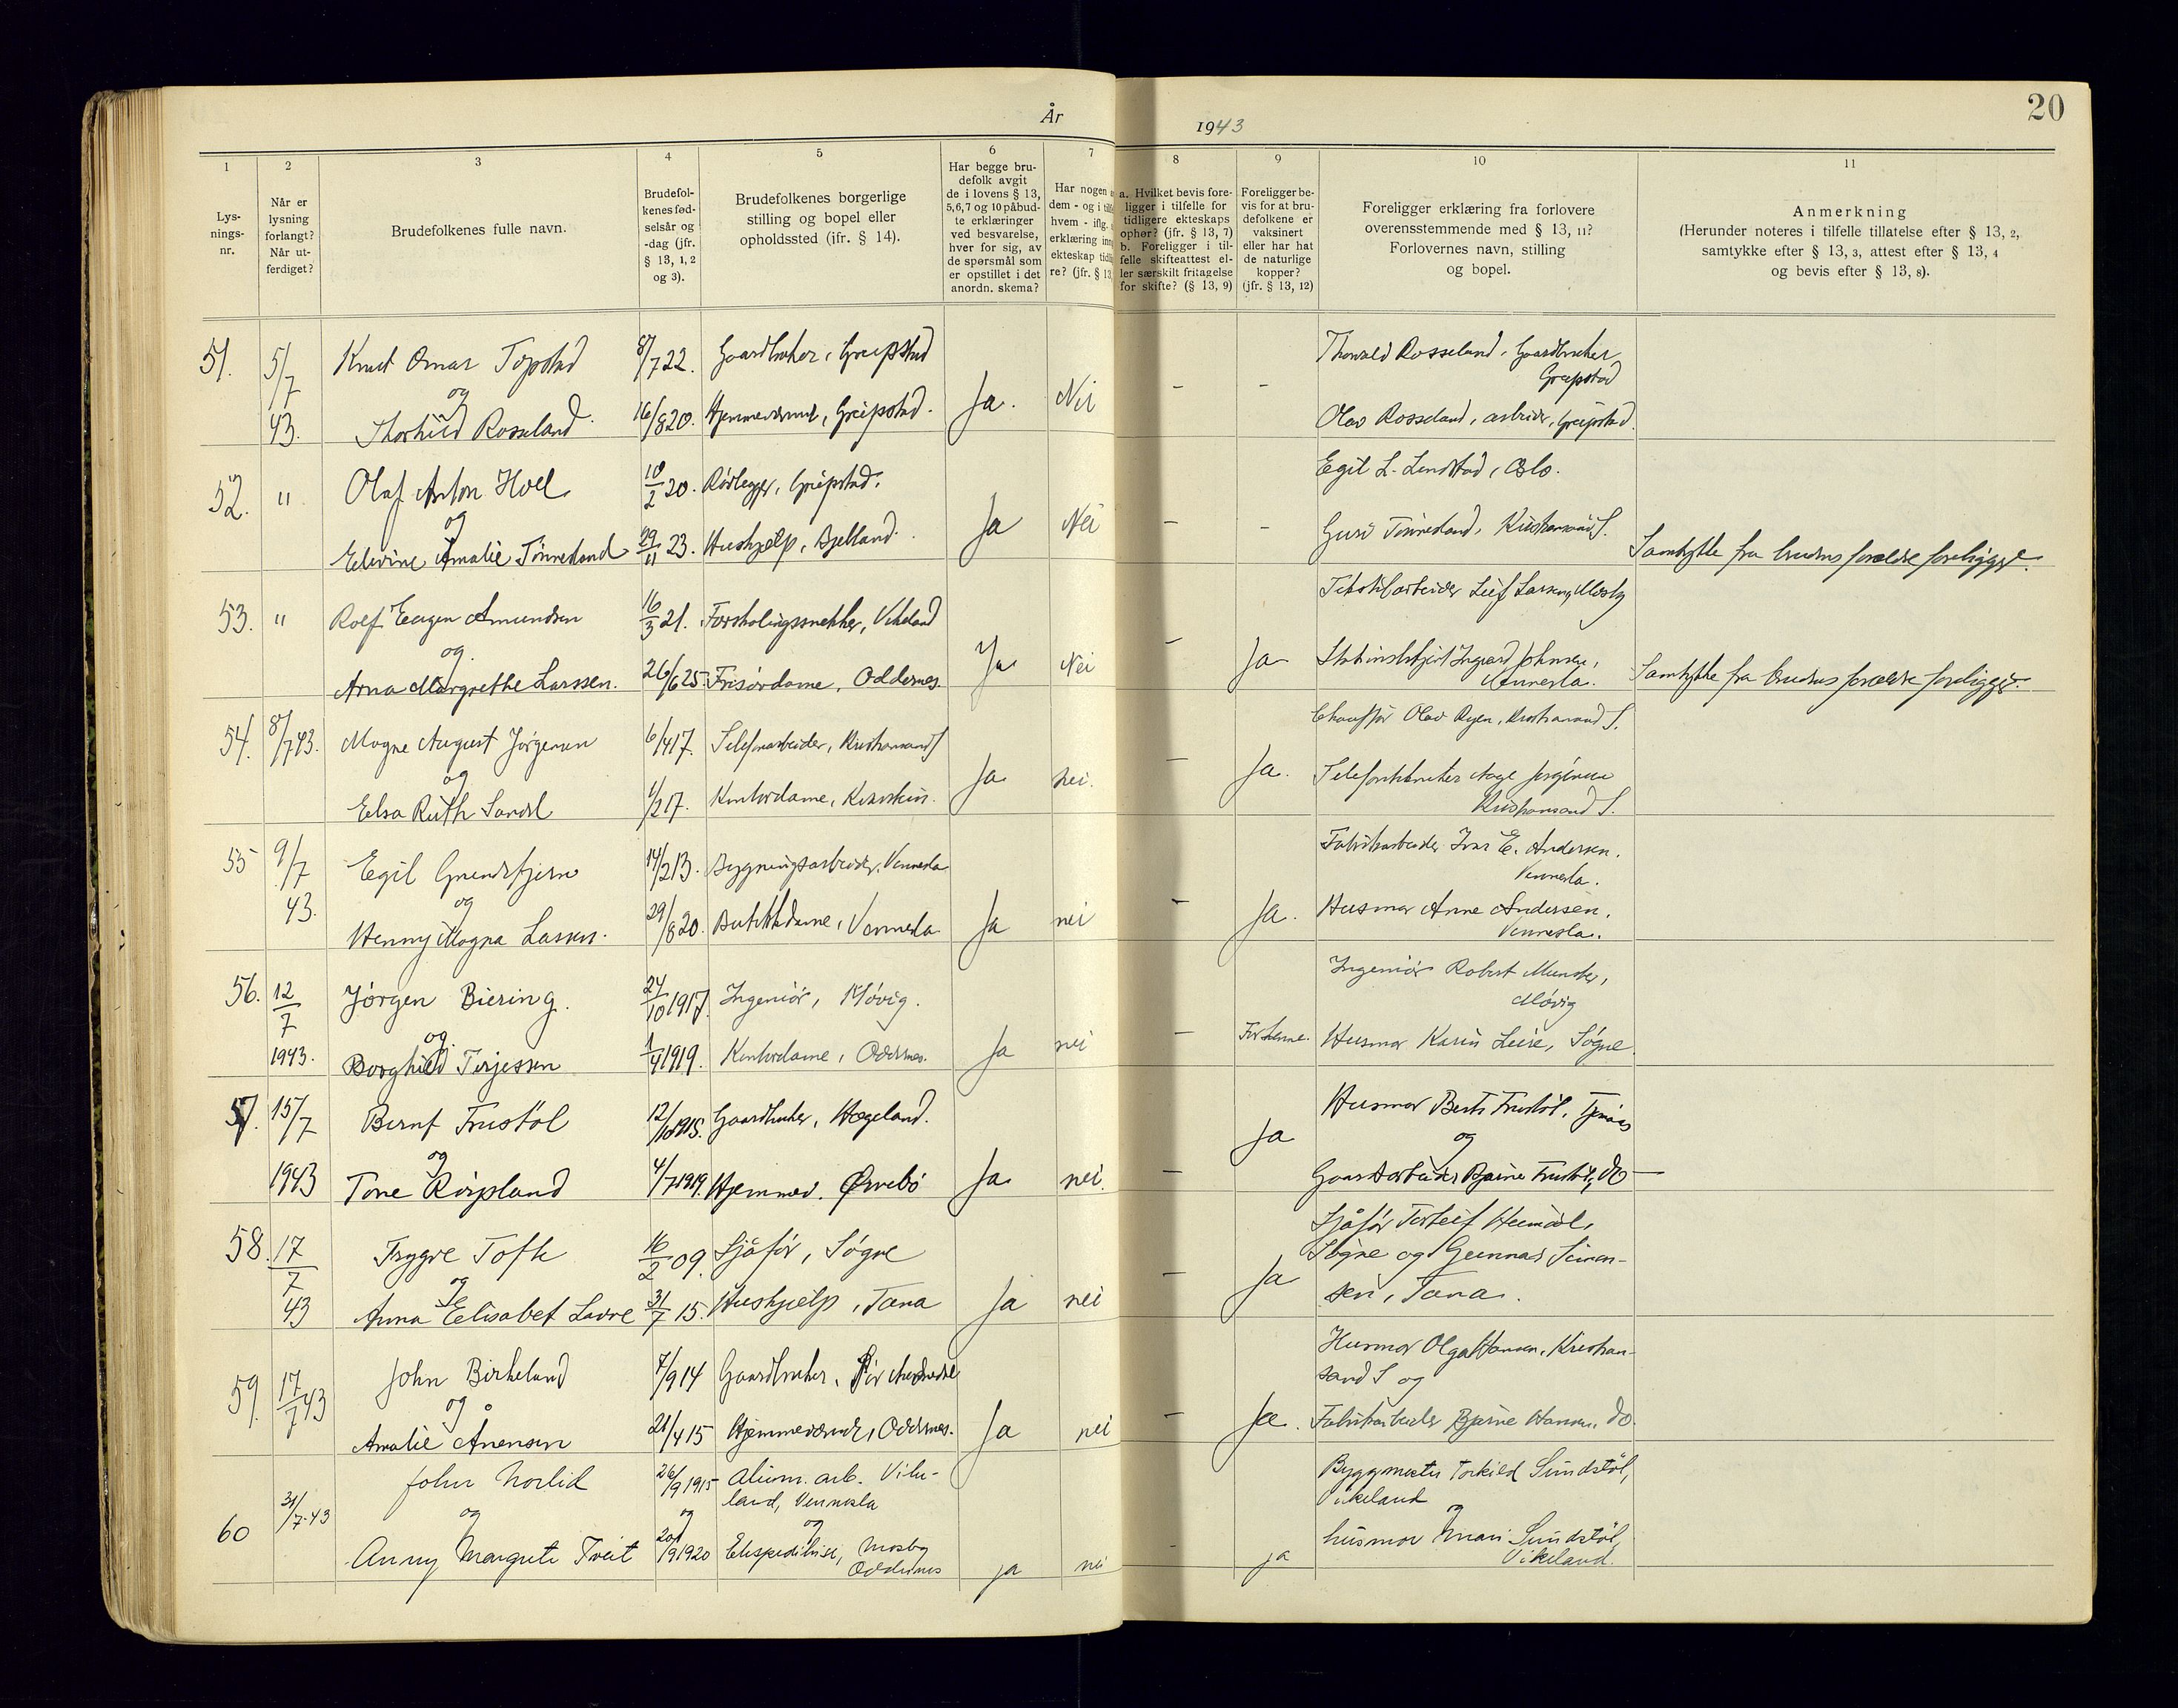 År
1943
20
1
2
3
4
5
6
7
8
9
10
11
Lys-
nings-
nr.
Når er
lysning
forlangt?
Når ut-
ferdiget?
Brudefolkenes fulle navn.
Brudefol-
kenes fød-
selsår og
-dag (jfr.
§ 13, 1, 2
og 3).
Brudefolkenes borgerlige
stilling og bopel eller
opholdssted (jfr. § 14).
Har begge bru-
defolk avgit
de i lovens § 13,
5, 6, 7 og 10 påbud-
te erklæringer
ved besvarelse,
hver for sig, av
de spørsmål som
er opstillet i det
anordn. skema?
Har nogen
dem - og i
hvem - iflg.
erklæring
ekteskap
re? (jfr. § 13,
a. Hvilket bevis fore-
ligger i tilfelle for
tidligere ekteskaps
ophør? (jfr. § 13, 7)
b. Foreligger i til-
felle skifteattest el-
ler særskilt fritagelse
for skifte? (§ 13, 9)
Foreligger be-
vis for at bru-
defolkene er
vaksinert
eller har hat
de naturlige
kopper?
(jfr. § 13, 12)
Foreligger erklæring fra forlovere
overensstemmende med § 13, 11?
Forlovernes navn, stilling
og bopel.
Anmerkning
(Herunder noteres i tilfelle tillatelse efter § 13, 2,
samtykke efter § 13, 3, attest efter § 13, 4
og bevis efter § 13, 8).
51. 5/7 43. Knut Omar Topstad 8/7 22. Gaardbruker, Greipstad
og
Thorhild Rosseland 16/8 20. Hjemmeværende, Greipstad. Ja. Nei - -
Thorvald Rosseland, Gaardbruker
Greipstad
Olav Rosseland, arbeider, Greipstad.
52. " Olaf Anton Hoel 10/2 20. Rørlegger, Greipstad.
og
Edvine Amalie Tønnesland 29/11 23. Hushjelp, Bjelland. Ja Nei - -
Egil L. Lindstad, Oslo.
Guri Tønnesland, Kristiansand S.
Samtykke fra brudens forældre foreligger.
53. " Rolf Eugen Amundsen 16/3 21. Forskalingssnekker, Vikeland
og
Arna Margrethe Larssen. 26/6 25. Frisørdame, Oddernes. Ja Nei - Ja
Tekstilarbeider Leif Larsen, Mosby
Stasjonsbetjent Ingvard Johnsen,
Vennesla.
Samtykke fra brudens forældre foreligger.
54. 8/7 43. Magne August Jørgensen 6/4 17. Telefonarbeider, Kristiansand S
og
Elsa Ruth Sandl 1/2 17. Kontordame, Ja nei. - Ja.
Chauffør Olav Ryen, Kristiansand S.
Aage Jørgensen
Kristiansand S.
55 9/7 43. Egil Grundetjern 14/2 13. Bygningsarbeider, Vennesla
og
Henny Magna Larsen. 29/8 20. Butikkdame, Vennesla Ja nei - Ja.
Fabrikarbeider Ivar E. Andersen.
Vennesla.
Husmor Anne Andersen,
Vennesla.
56. 12/7 1943. Jørgen Biering. 24/10 1917. Ingeniør, Møvig.
og.
Borghild Terjessen 1/4 1919. Kontordame, Oddernes. Ja nei - For henne.
Ingeniør Robert Munster,
Møvig
Husmor Karin Leire, Søgne.
57. 15/7 1943 Bernt Trustøl 12/10 1915. Gaardbruker, Hægeland.
og
Tone Røispland 4/7 1919. Hjemmev. Øvrebø Ja nei. - Ja
Husmor Berta Trustøl,
og
Gaardarbeider Bjarne Trustøl, do
58. 17/7 43 Trygve Tofte 16/2 09. Sjåfør, Søgne
og
Anna Elisabet Lavre 31/7 15. Hushjælp, Tana Ja nei - Ja
Sjåfør Torleif
Søgne og Gunnar Simen-
sen, Tana.
59. 17/7 43 John Birkeland 7/9 14 Gaardbruker,
og
Amalie Ånensen 21/4 15 Hjemmeværende, Oddernes. Ja nei - Ja.
Husmor Olga Hansen, Kristian-
sand S og
Fabrikarbeider Bjarne Hansen, do.
60 31/7-43 John Norlid 26/9 1915 Alum. arb. Vike-
land, Vennesla
og og og
Anny Margrete Tveit 20/9 1920 Ekspeditrise, Mosby
Oddernes ja nei - ja
Byggmester Torkild Sundstøl,
Vikeland
og
husmor Mari Sundstøl,
Vikeland.